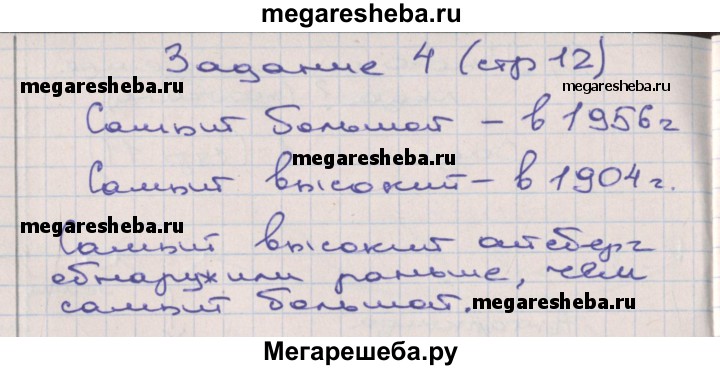 megaresheba.ru
Задание 4 (стр 12)
megaresheba.ru
megaresheba.ru
Самый большой – в 1956 г
megaresheba.ru
Самый высокий – в 1904 г.
megaresheba.ru
Самый высокий айсберг
обнаружили раньше, чем
самый большой.
megaresheba.ru
Мегарешеба.ру